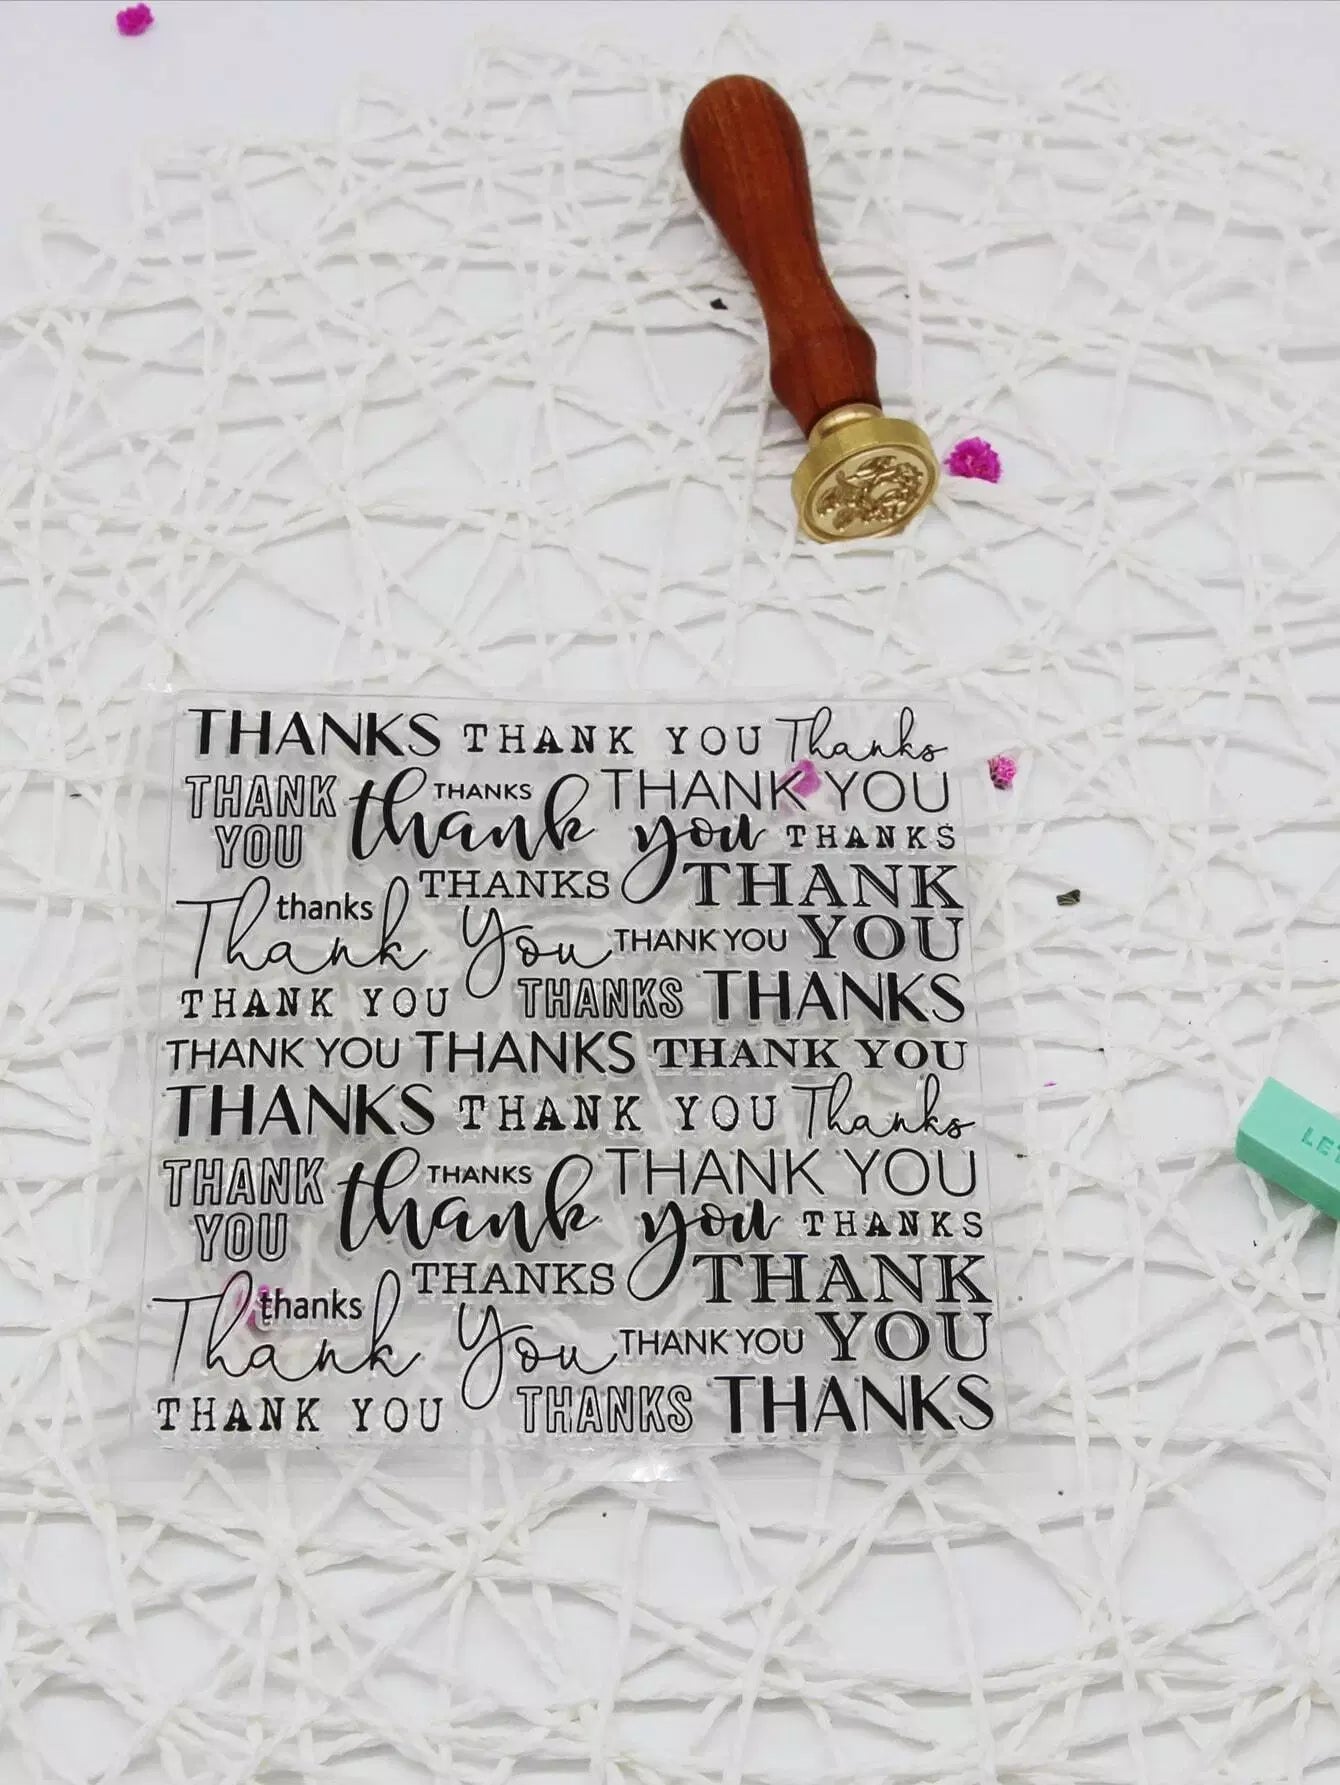 THANKS THANK YOU Thanks
THANK YOU
THANKS
thank you
THANK YOU
THANKS
THANKS
THANK YOU
thanks
Thank You
THANK YOU
THANK YOU
THANKS
THANKS
THANK YOU THANKS THANK YOU
THANKS THANK YOU Thanks
THANK YOU
THANKS
thank you
THANK YOU
THANKS
THANKS
THANK YOU
thanks
Thank You
THANK YOU
THANK YOU
THANKS
THANKS